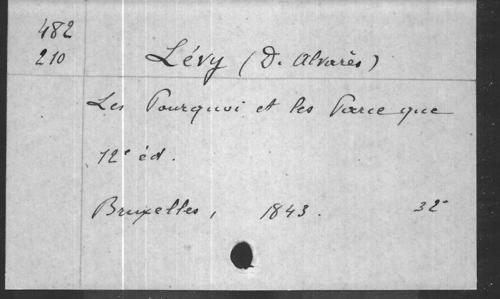 482
210
Lévy (D. Alvarès)
Les Pourquoi et les Parce que
12e éd.
Bruxelles, 1843. 32°